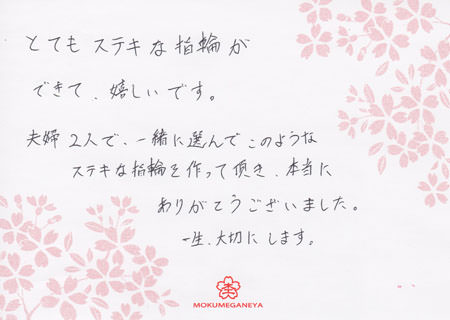 とてもステキな指輪が
できて、嬉しいです。
夫婦2人で、一緒に選んでこのような
ステキな指輪を作って頂き、本当に
ありがとうございました。
一生、大切にします。
MOKUMEGANEYA